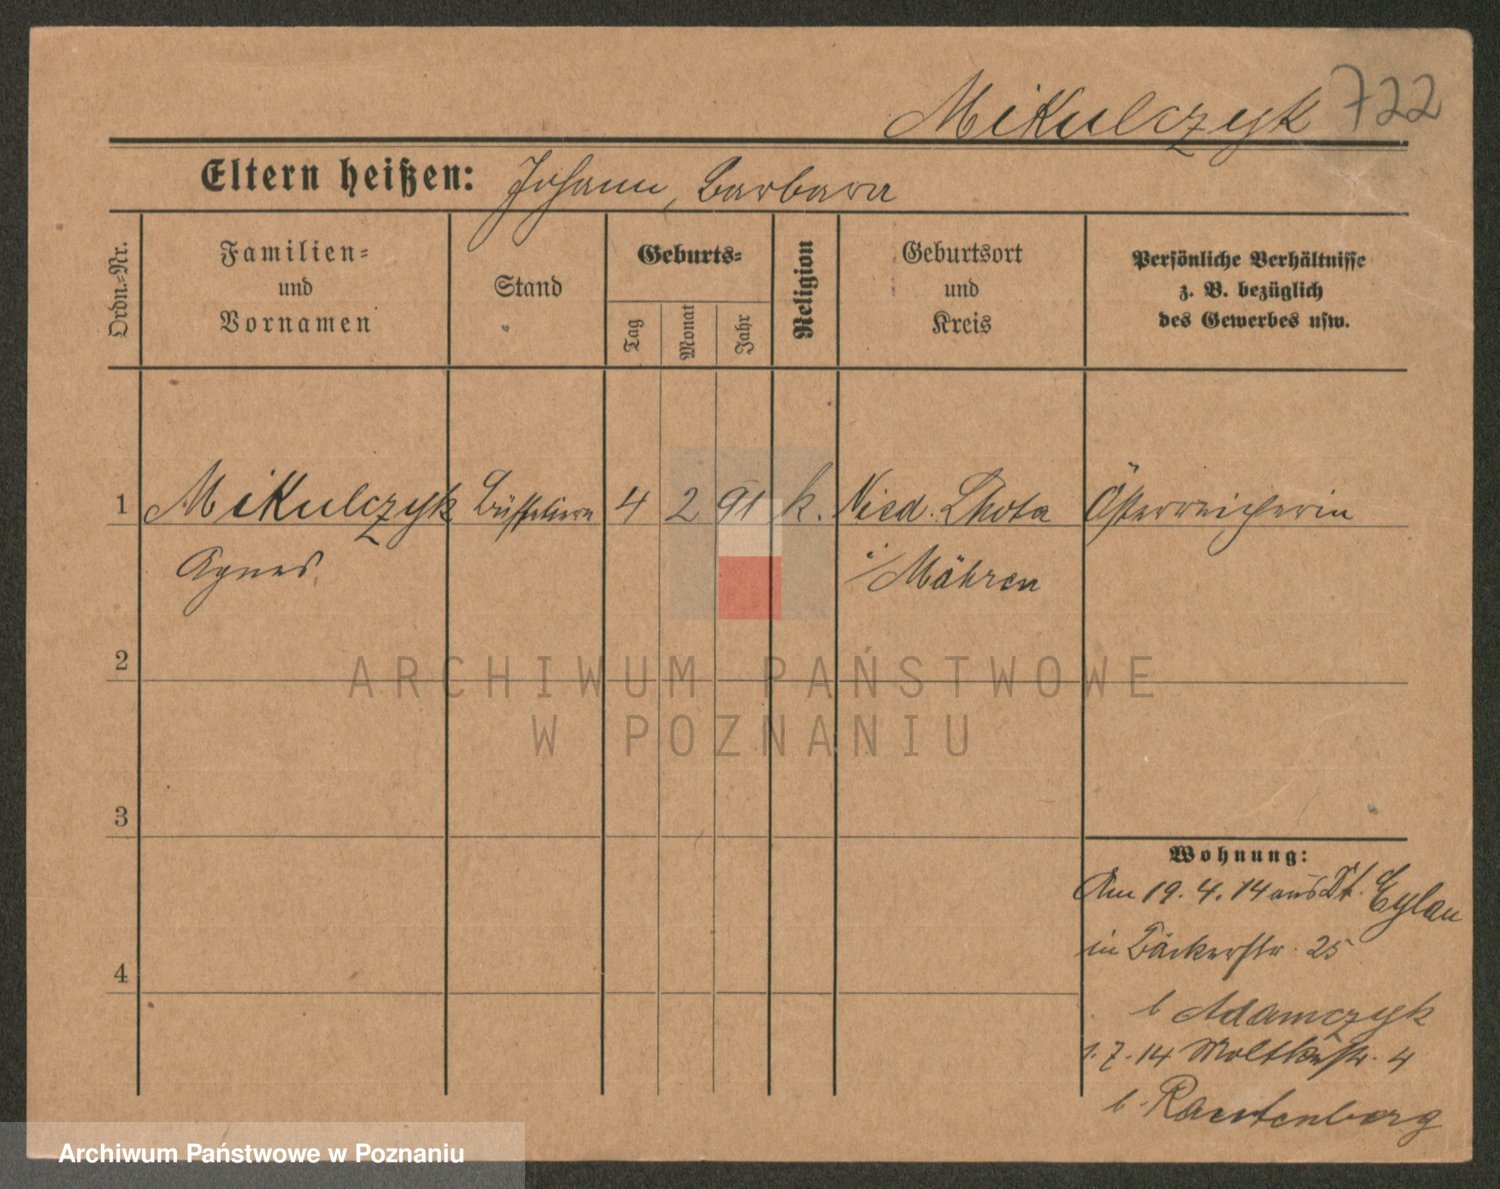 Mikulczyk 722
Eltern heißen: Johann, Barbara
Ordn.-Nr.
Familien-
und
Vornamen
Stand
Geburts-
Tag
Monat
Jahr
Religion
Geburtsort
und
Kreis
Persönliche Verhältnisse
z. B. bezüglich
des Gewerbes usw.
1 Mikulczyk Büffetiere 4 2 91 k. Nied. Lhota Österreicherin
Agnes i/Mähren
2
ARCHIWUM PAŃSTWOWE
W POZNANIU
3
Wohnung:
Am 19. 4. 14 aus Dt. Eylau
in Bäckerstr. 25
4
b Adamczyk
1. 7. 14 Moltkestr. 4
b. Rautenberg
Archiwum Państwowe w Poznaniu